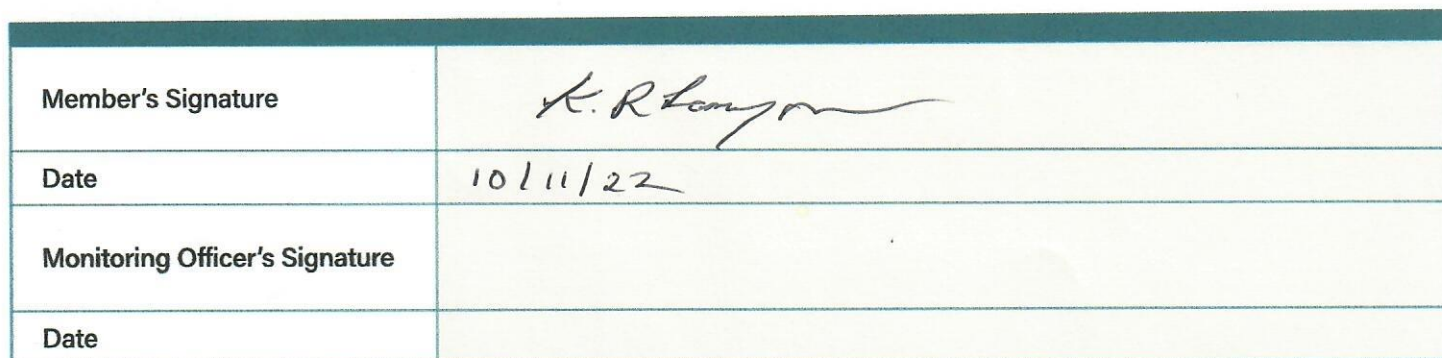 Member's Signature
K. R
Date
10/11/22
Monitoring Officer's Signature
Date